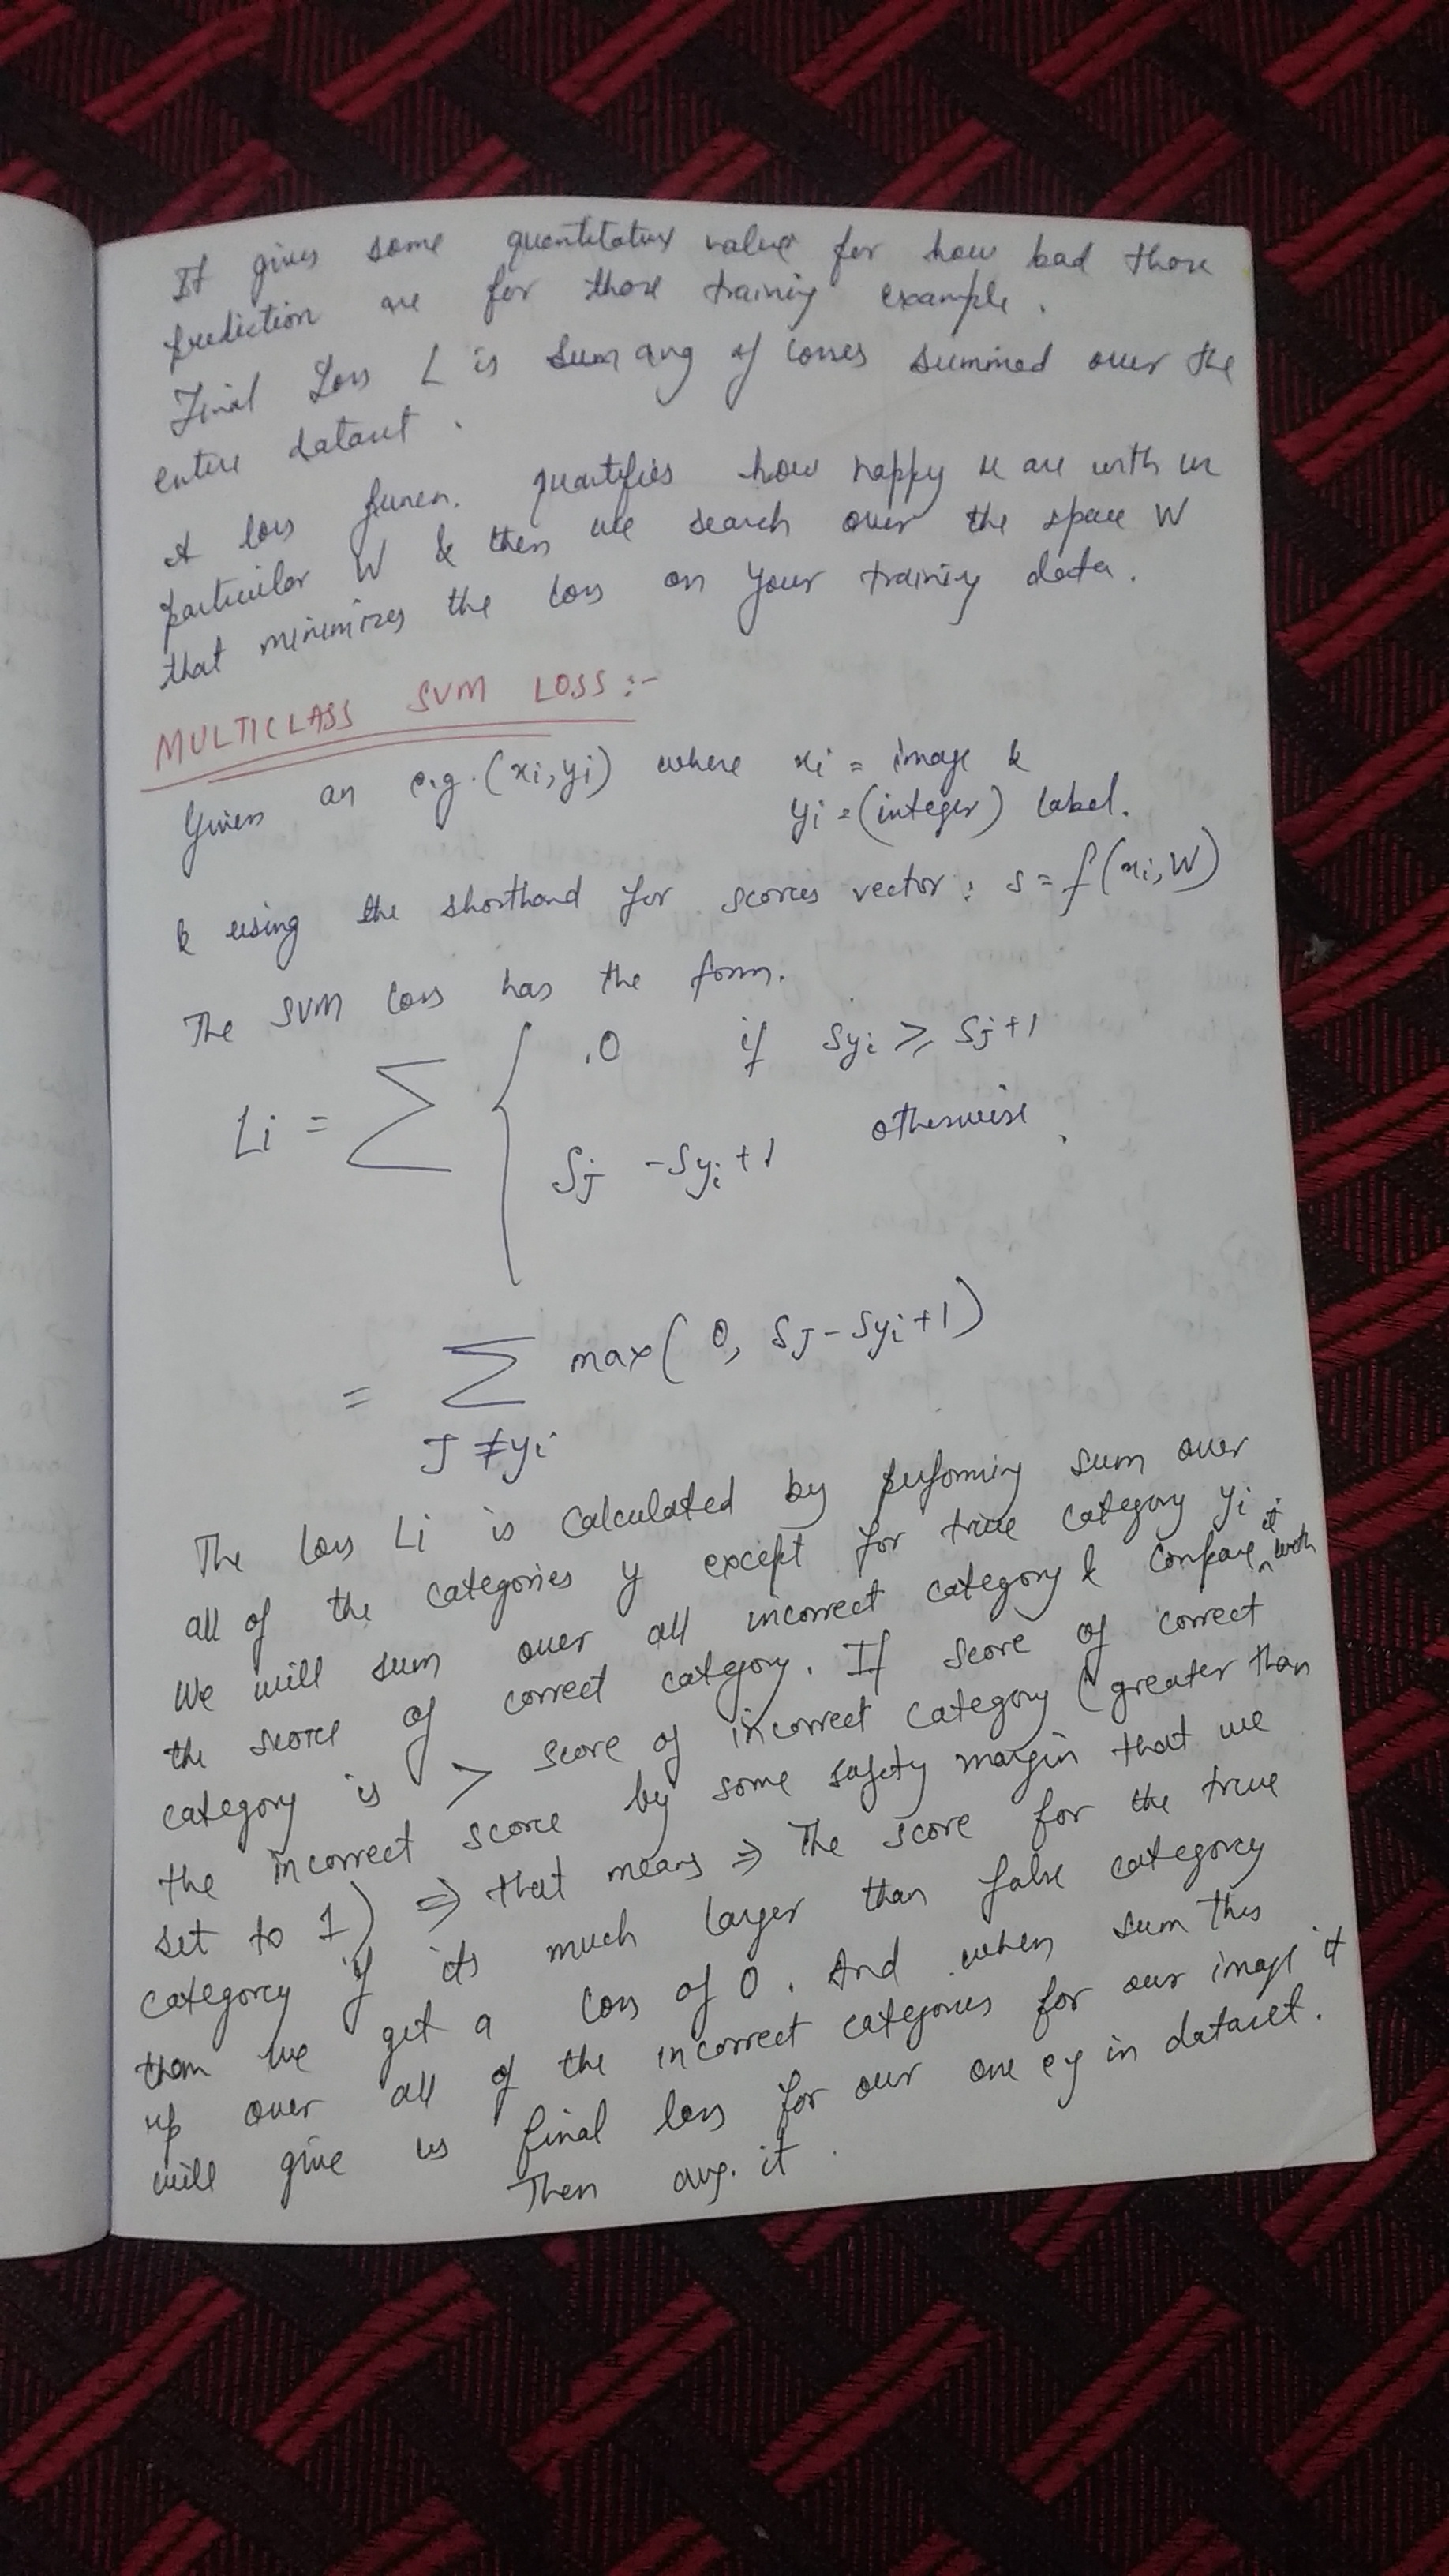 It gives some quantitative value for how bad those
prediction are for those training example.
Final Loss L is sum avg of losses summed over the
entire dataset.
A loss funcn. quantifies how happy u are with ur
particular W & then we search over the space W
that minimizes the loss on your training data.
MULTICLASS SVM LOSS :-
Given an e.g. (xi, yi) where xi = image &
yi = (integer) label.
& using the shorthand for scores vector: s = f(xi, W)
The SVM loss has the form.
Li = ∑ { 0 if Syi ≥ Sj + 1
Sj - Syi + 1 otherwise.
= ∑ max(0, SJ - Syi + 1)
J ≠ yi
The loss Li is calculated by performing sum over
all of the categories y except for true category yi.
We will sum over all incorrect category & compare it with
the score of correct category. If score of correct
category is > score of incorrect category (greater than
the incorrect score by some safety margin that we
set to 1) ⇒ that means ⇒ The score for the true
category if its much larger than false category
then we get a loss of 0. And when sum this
up over all of the incorrect categories for our image it
will give us final loss for our one eg in dataset.
Then avg. it.